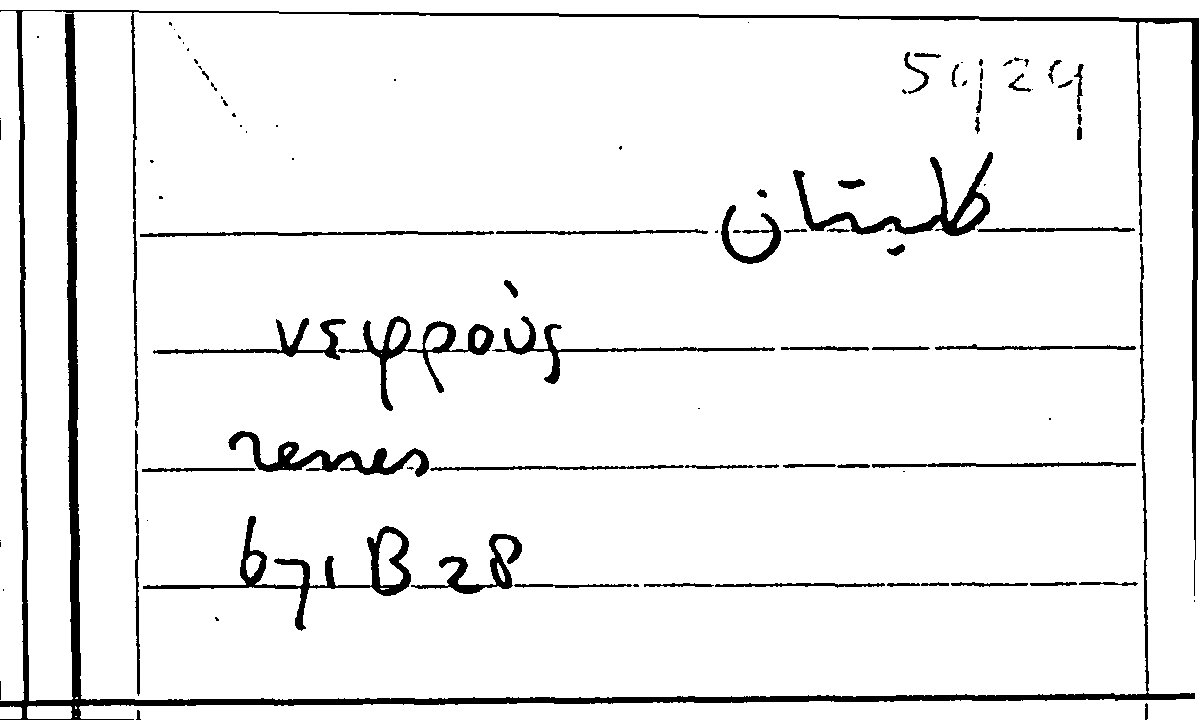 5929
كليتان
νεφροὺς
renes
671 B 28